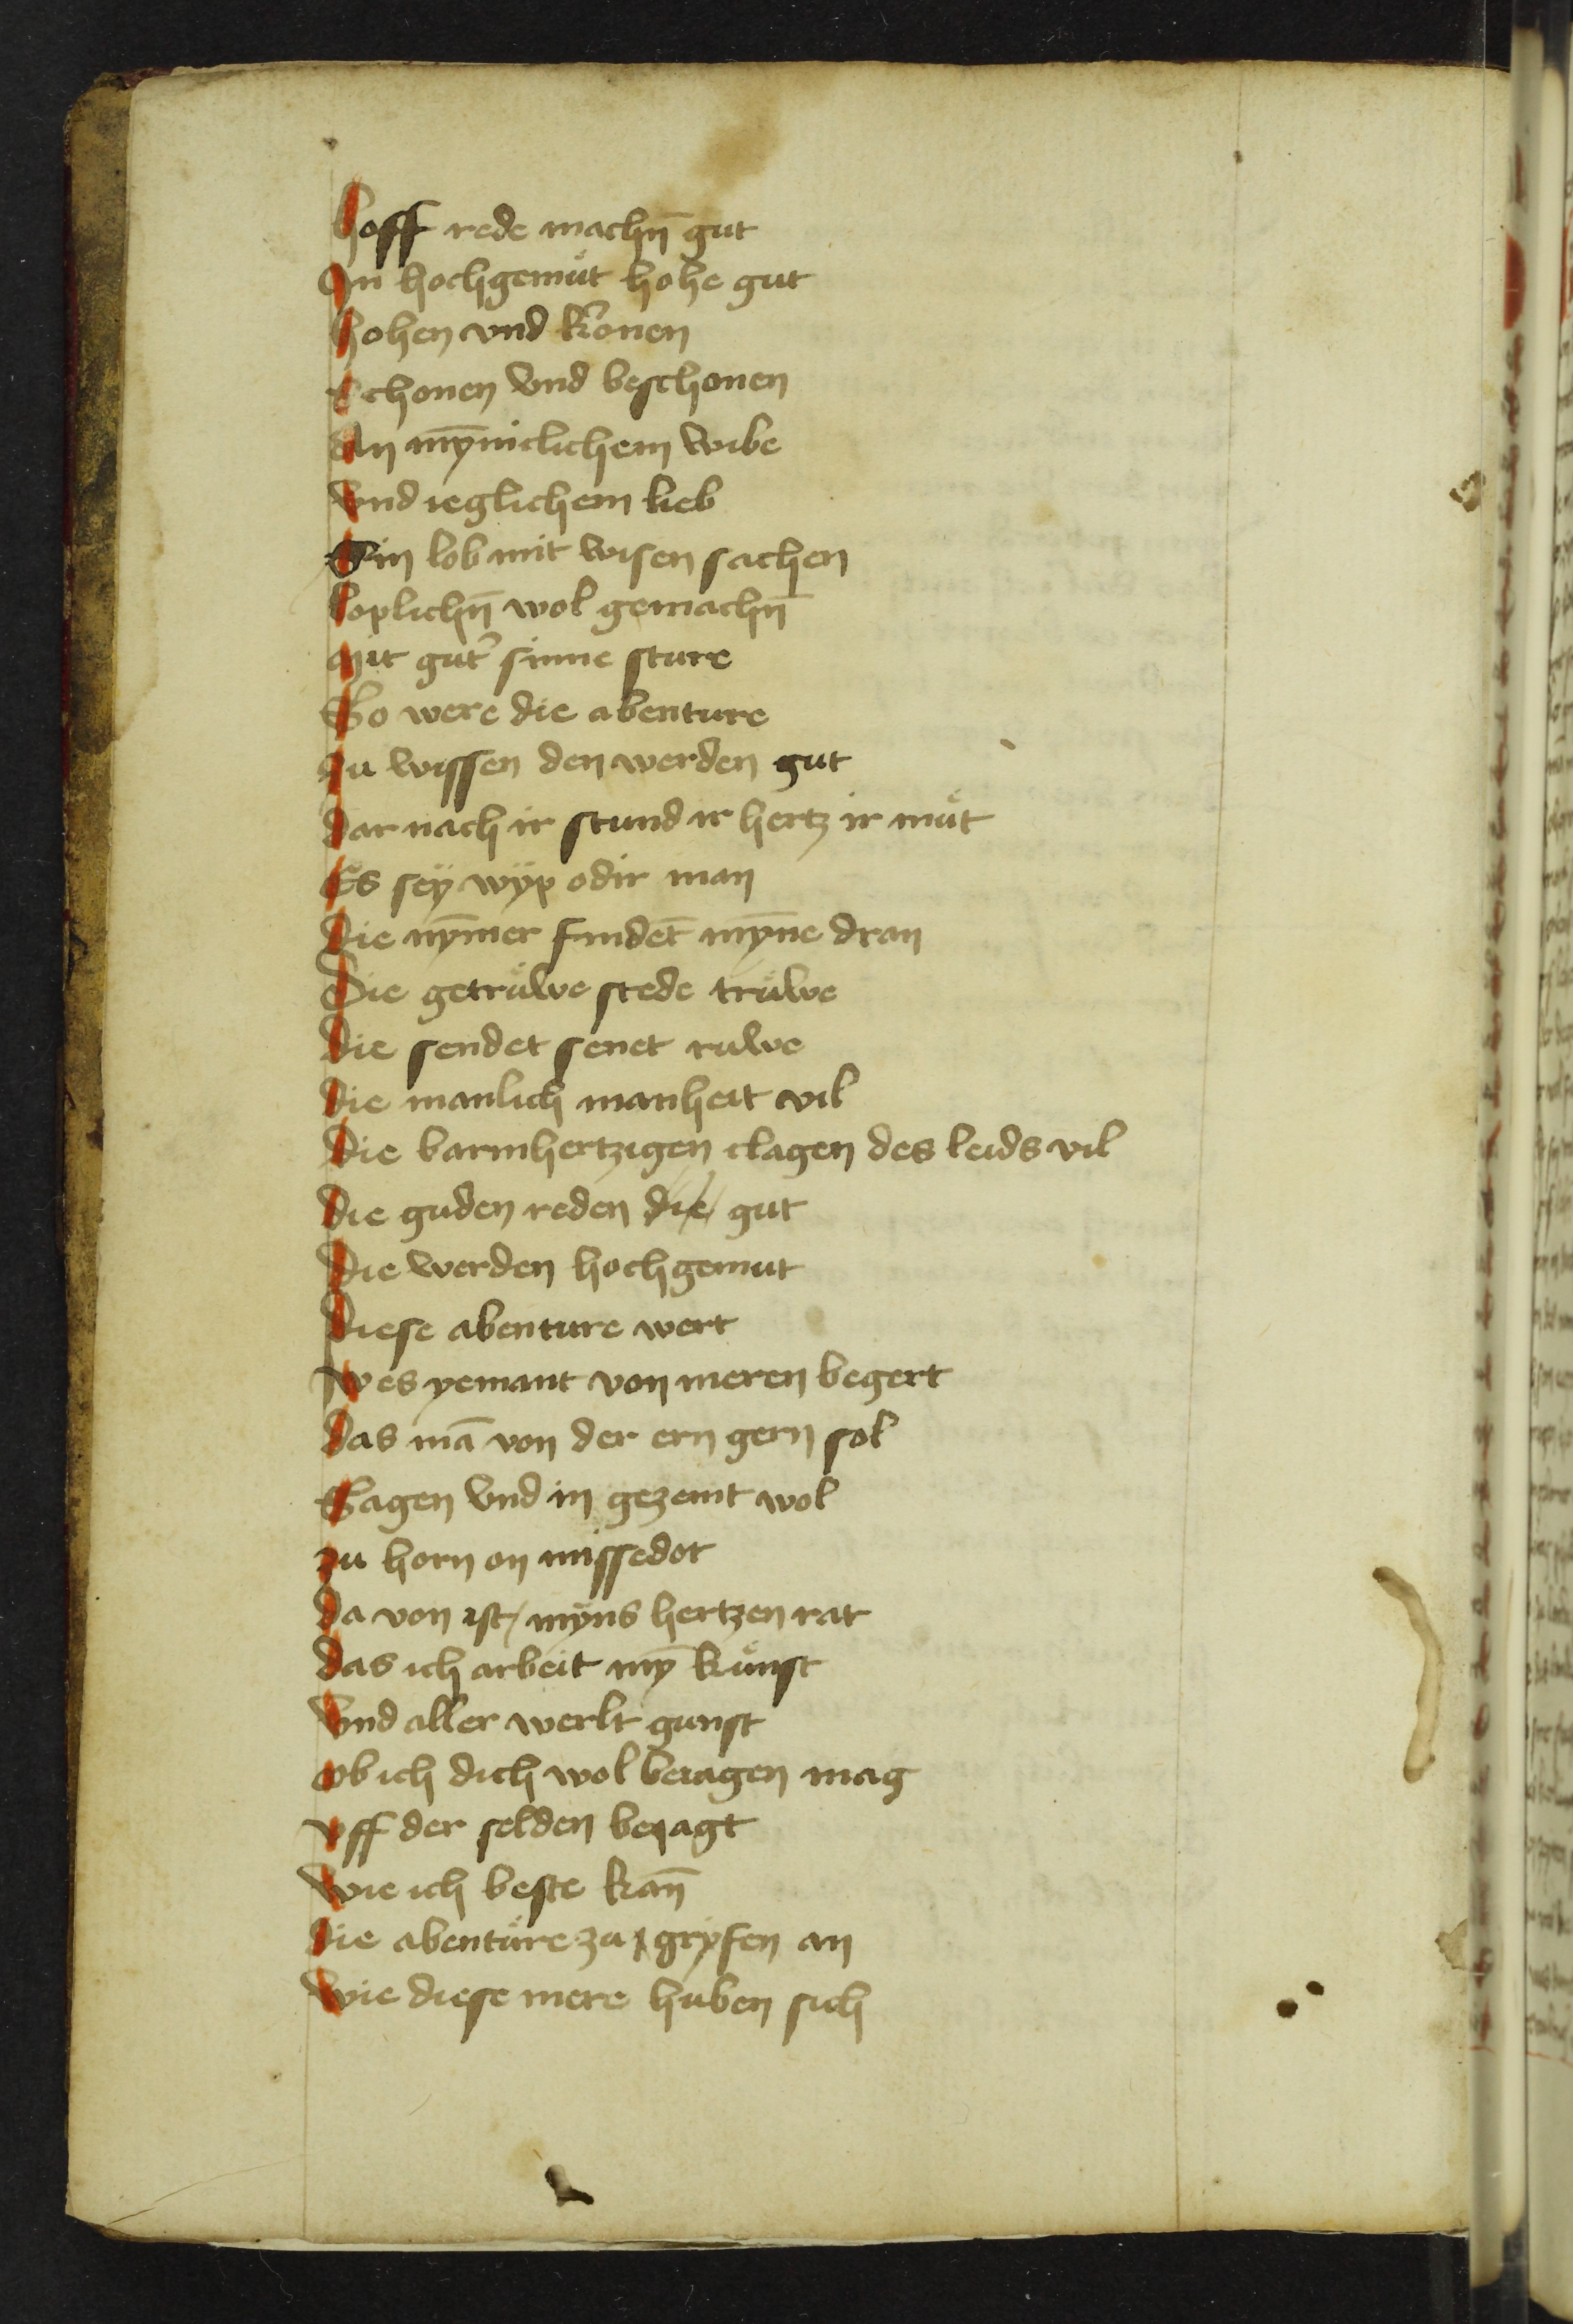 Hoff rede machn̄ gut
In hochgemuͤt hohe gut
Hohen vnd kronen
Schonen vnd beschonen
An mȳniclichem wibe
Vnd ieglichem lieb
Sin lob mit wisen sachen
Loplichn̄ wol gemachn̄
Mit gut̕ sinne sture
So were die abenture
Zu wissen den werden gut
Dar nach ir stund ir hertz ir muͤt
Es seÿ wÿp odir man
Die nȳmer findet̄ mȳne dran
Die getruͤwe stede truͤwe
Die sendet senet ruwe
Die manlich manheit vil
Die barmhertzigen clagen des leids vil
Die guden reden die gut
Die werden hochgemut
Diese abenture wert
Wes yemant von meren begert
Das mā von der ern gern sol
Sagen vnd in gezemt wol
Zu horn on missedot
Da von ist mÿns hertzen rat
Das ich arbeit mȳ kuͤnst
Vnd aller werlt gunst
Ob ich dich wol beiagen mag
Vff der selden beiagt
Wie ich beste kan̄
Die abentuͤre zu grÿfen an
Wie diese mere huben sich